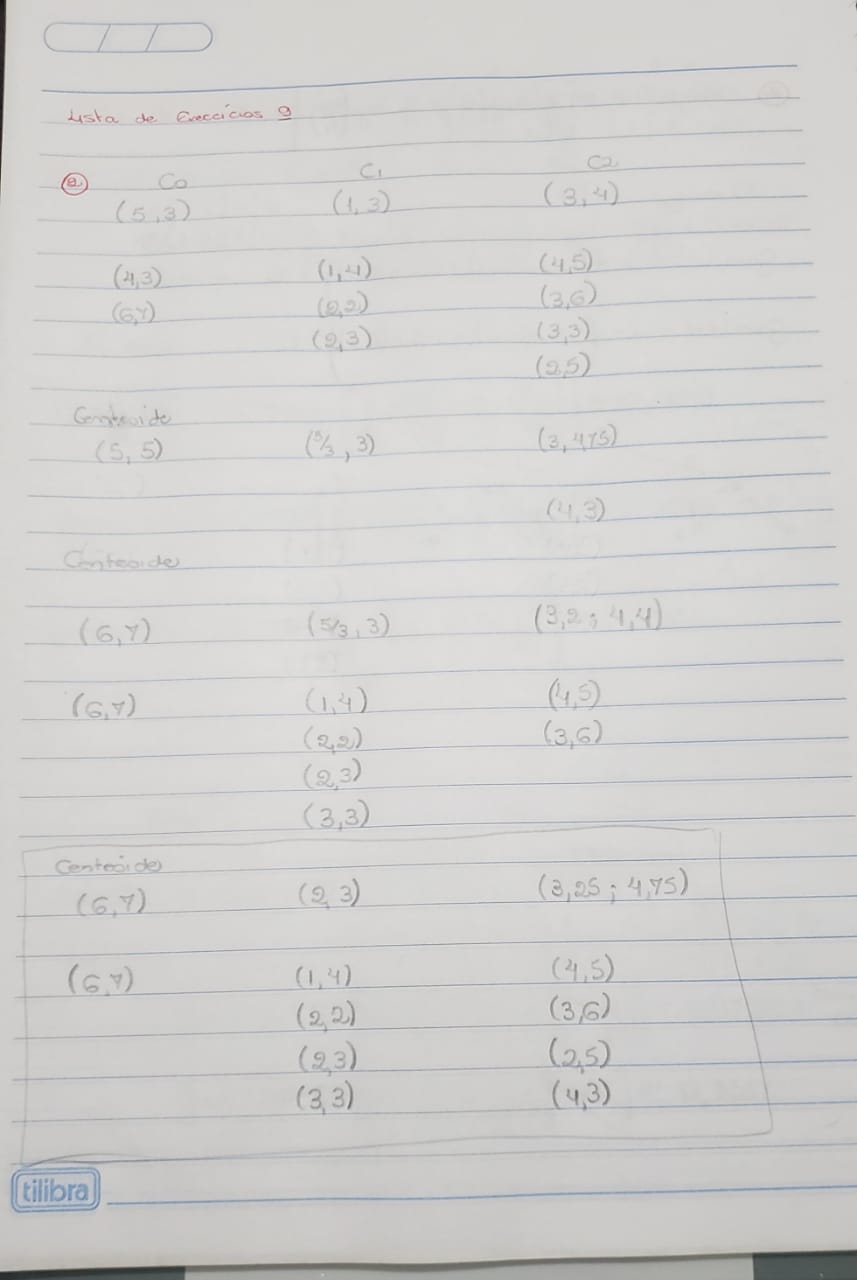 Lista de Exercícios 9
a C0 C1 C2
(5,3) (1,3) (3,4)
(4,3) (1,4) (4,5)
(6,7) (2,2) (3,6)
(2,3) (3,3)
(2,5)
Centroide
(5,5) (5/3, 3) (3, 4,75)
(4,3)
Centroide
(6,7) (5/3, 3) (3,2 ; 4,4)
(6,7) (1,4) (4,5)
(2,2) (3,6)
(2,3)
(3,3)
Centróide
(6,7) (2,3) (3,25 ; 4,75)
(6,7) (1,4) (4,5)
(2,2) (3,6)
(2,3) (2,5)
(3,3) (4,3)
tilibra